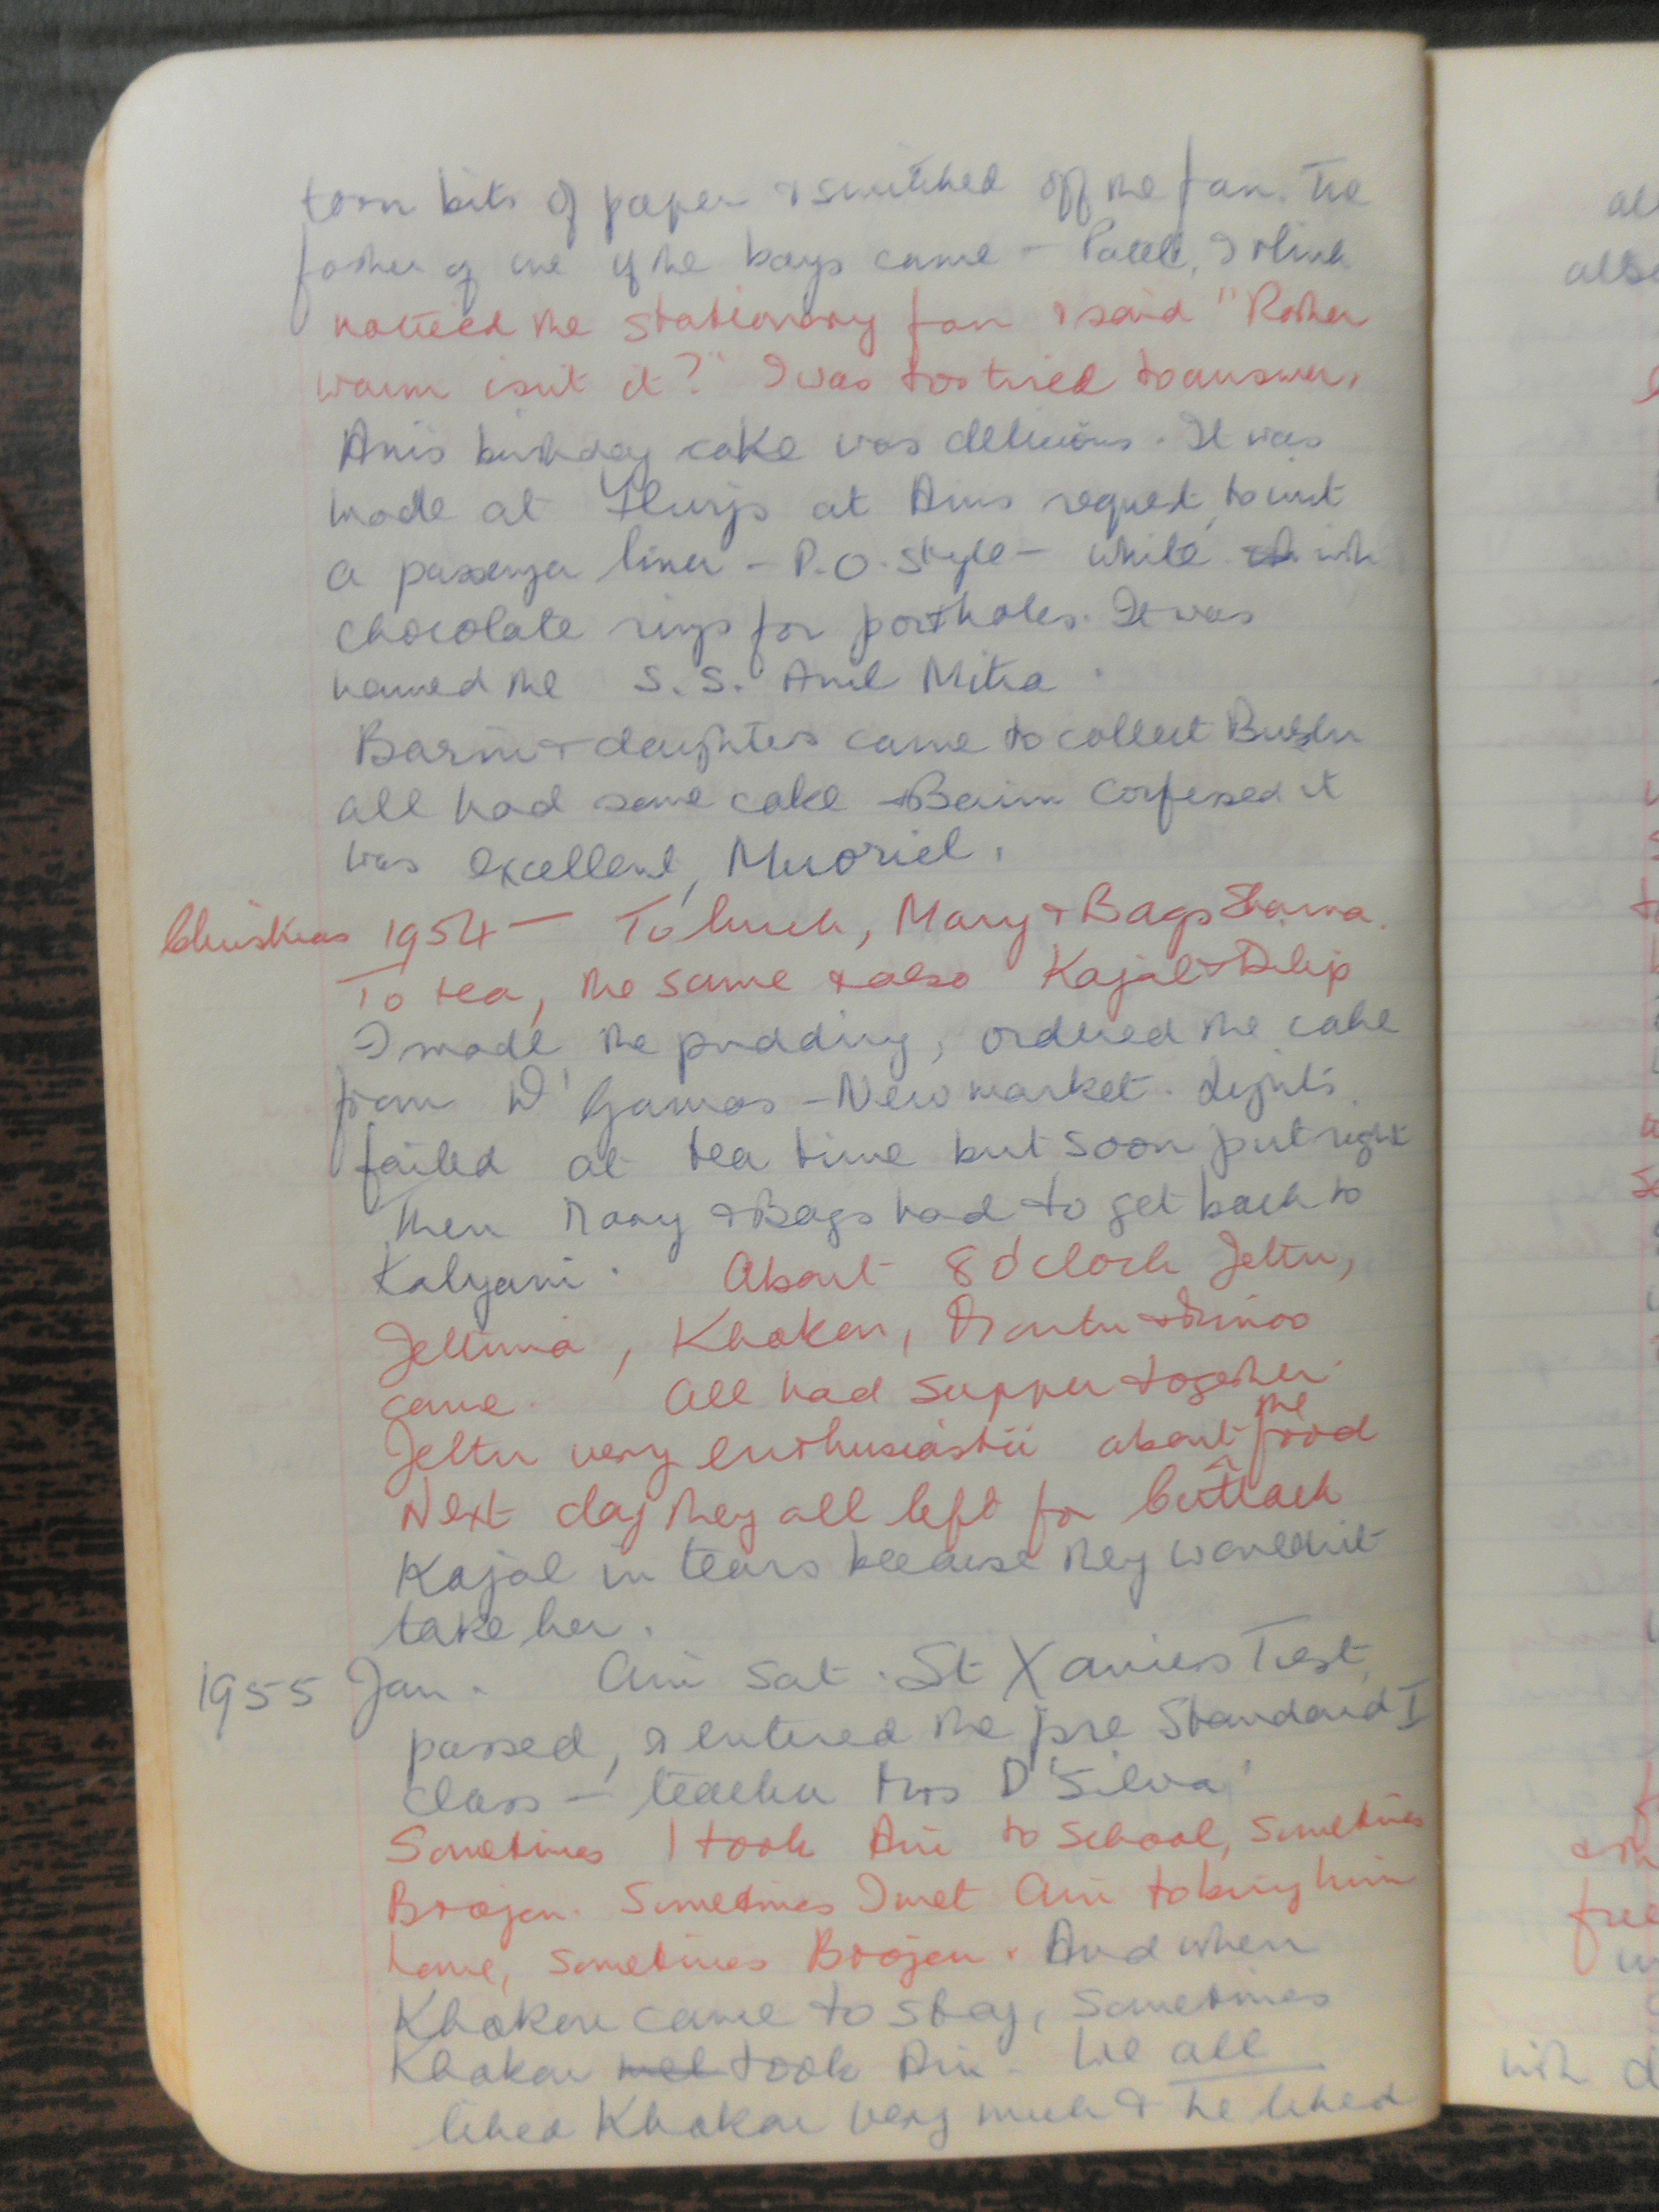 torn bits of paper & switched off the fan. The
father of one of the boys came – Patel, I think
noticed the stationary fan & said "Rather
warm isnt it?" I was too tired to answer.
Anis birthday cake was delicious. It was
made at Flurys at Anis request, to imit
a passenger liner – P.O. style – white with
chocolate rings for portholes. It was
named the S.S. Anil Mitra.
& daughters came to collect
all had some cake & confessed it
was excellent, Muoriel.
Christmas 1954 – To lunch, Mary & Bags Sharma.
To tea, the same & also Kajal & Dilip
I made the pudding, ordered the cake
from D'Gamas – New market. Lights
failed at tea time but soon put right
Then Mary & Bags had to get back to
Kalyani. About 8 o'clock Jeltu,
Jeltima, Khokon,
came. All had supper together.
Jeltu very enthusiastic about the food
Next day they all left for Cuttack
Kajal in tears because they wouldnt
take her.
1955 Jan. Ani sat St Xaviers Test,
passed, & entered the pre Standard I
class – teacher Mrs D'Silva.
Sometimes I took Ani to school, sometimes
Brojen. Sometimes I met Ani to bring him
home, sometimes Brojen. And when
Khokon came to stay, sometimes
Khokon met took Ani. We all
liked Khokon very much & he liked
al
als
fre
with d